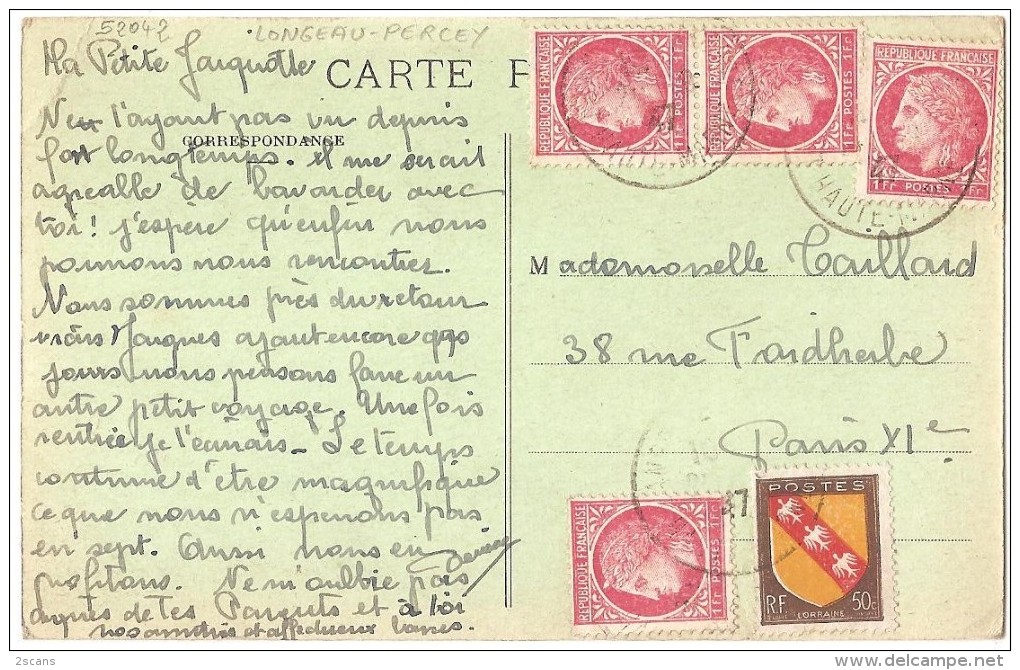 52042
LONGEAU-PERCEY
Ma Petite Jacquotte
CARTE P
Ne t'ayant pas vu depuis
CORRESPONDANCE
fort longtemps. il me serait
agréable de bavarder avec
toi! j'espère qu'enfin nous
pourrons nous rencontrer.
Nous sommes près du retour
mais Jacques ayant encore qqs
jours nous pensons faire un
autre petit voyage. Une fois
rentrée je t'écrirais - Le temps
continue d'être magnifique
ce que nous n'esperions pas
en sept. Aussi nous en
profitons. Ne m'oublie pas
auprès de tes Parents et à toi
nos amitiés et affectueux baisers.
Denise
Mademoiselle Taillard
38 rue Faidherbe
Paris XIe
REPUBLIQUE FRANÇAISE
1Fr POSTES 1Fr
REPUBLIQUE FRANÇAISE
1Fr POSTES 1Fr
REPUBLIQUE FRANÇAISE
1Fr POSTES 1Fr
HAUTE-MARNE
REPUBLIQUE FRANÇAISE
1Fr POSTES 1Fr
47
POSTES
RF LORRAINE 50c
2scans
delcampe.net